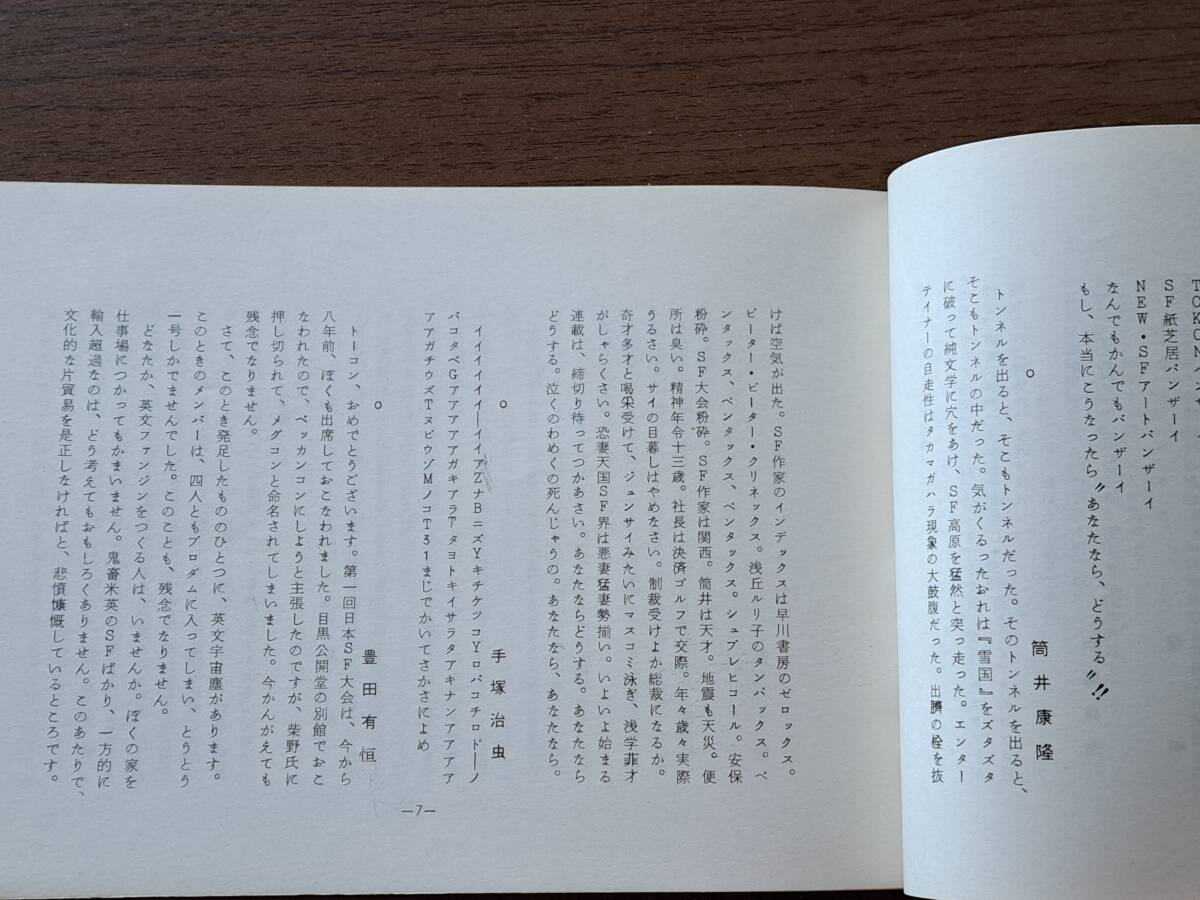 SF紙芝居バンザーイ
NEW・SFアートバンザーイ
なんでもかんでもバンザーイ
もし、本当にこうなったら〝あなたなら、どうする〟!!
○
筒井康隆
トンネルを出ると、そこもトンネルだった。そのトンネルを出ると、
そこもトンネルの中だった。気がくるったおれは『雪国』をズタズタ
に破って純文学に穴をあけ、SF高原を猛然と突っ走った。エンター
テイナーの自走性はタカマガハラ現象の大鼓腹だった。出臍の栓を抜
けば空気が出た。SF作家のインデックスは早川書房のゼロックス。
ピーター・ピーター・クリネックス。浅丘ルリ子のタンパックス。ペ
ンタックス、ペンタックス、ペンタックス。シュプレヒコール。安保
粉砕。SF大会粉砕。SF作家は関西。筒井は天才。地震も天災。便
所は臭い。精神年令十三歳。社長は決済ゴルフで交際。年々歳々実際
うるさい。サイの目暮しはやめなさい。制裁受けよか総裁になるか。
奇才多才と喝采受けて、ジュンサイみたいにマスコミ泳ぎ、浅学菲才
がしゃらくさい。恐妻天国SF界は悪妻猛妻勢揃い。いよいよ始まる
連載は、締切り待ってつかあさい。あなたならどうする。あなたなら
どうする。泣くのわめくの死んじゃうの。あなたなら、あなたなら。
○
手塚治虫
イイイイイイ―イイアZナBニズYキチケツコYロパコチロド―ノ
パコタペGアアアアアガキアラTタヨトキイサラタアキナンアアアア
アアガチウズTヌビウゾMノコT31まじでかいてさかさによめ
○
豊田有恒
トーコン、おめでとうございます。第一回日本SF大会は、今から
八年前、ぼくも出席しておこなわれました。目黒公開堂の別館でおこ
なわれたので、ベッカンコンにしようと主張したのですが、柴野氏に
押し切られて、メグコンと命名されてしまいました。今かんがえても
残念でなりません。
さて、このとき発足したもののひとつに、英文宇宙塵があります。
このときのメンバーは、四人ともプロダムに入ってしまい、とうとう
一号しかでませんでした。このことも、残念でなりません。
どなたか、英文ファンジンをつくる人は、いませんか。ぼくの家を
仕事場につかってもかまいません。鬼畜米英のSFばかり、一方的に
輸入超過なのは、どう考えてもおもしろくありません。このあたりで、
文化的な片貿易を是正しなければと、悲憤慷慨しているところです。
―7―